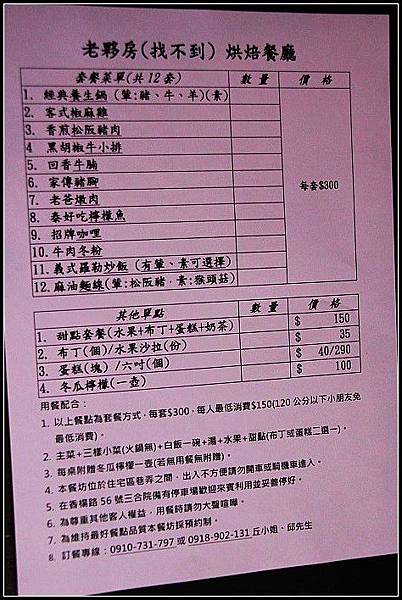 老夥房(找不到) 烘焙餐廳
套餐菜單(共12套) 數量 價格
1. 經典養生鍋 (葷:豬、牛、羊)(素)
2. 客式椒麻雞
3. 香煎松阪豬肉
4 黑胡椒牛小排
5. 回香牛腩
6. 家傳豬腳
7. 老爸燉肉
8. 泰好吃檸檬魚
9. 招牌咖哩
10.牛肉冬粉
11.義式羅勒炒飯 (有葷、素可選擇)
12.麻油麵線(葷:松阪豬．素:猴頭菇)
每套$300
其他單點 數量 價格
1. 甜點套餐(水果+布丁+蛋糕+奶茶) $ 150
2. 布丁(個)/水果沙拉(份) $ 35
3. 蛋糕(塊) /六吋(個) $ 40/290
4. 冬瓜檸檬(一壺) $ 100
用餐配合：
1. 以上餐點為套餐方式，每套$300，每人最低消費$150(120公分以下小朋友免
最低消費)。
2. 主菜+三樣小菜(火鍋無)+白飯一碗+湯+水果+甜點(布丁或蛋糕二選一)。
3. 每桌附贈冬瓜檸檬一壺(若無用餐無附贈)。
4. 本餐坊位於住宅區巷弄之間，出入不方便請勿開車或騎機車進入。
5. 在香楊路56號三合院備有停車場歡迎來賓利用並妥善停好。
6. 為尊重其他客人權益，用餐時請勿大聲喧嘩。
7. 為維持最好餐點品質本餐坊採預約制。
8. 訂餐專線：0910-731-797 或 0918-902-131 丘小姐、邱先生